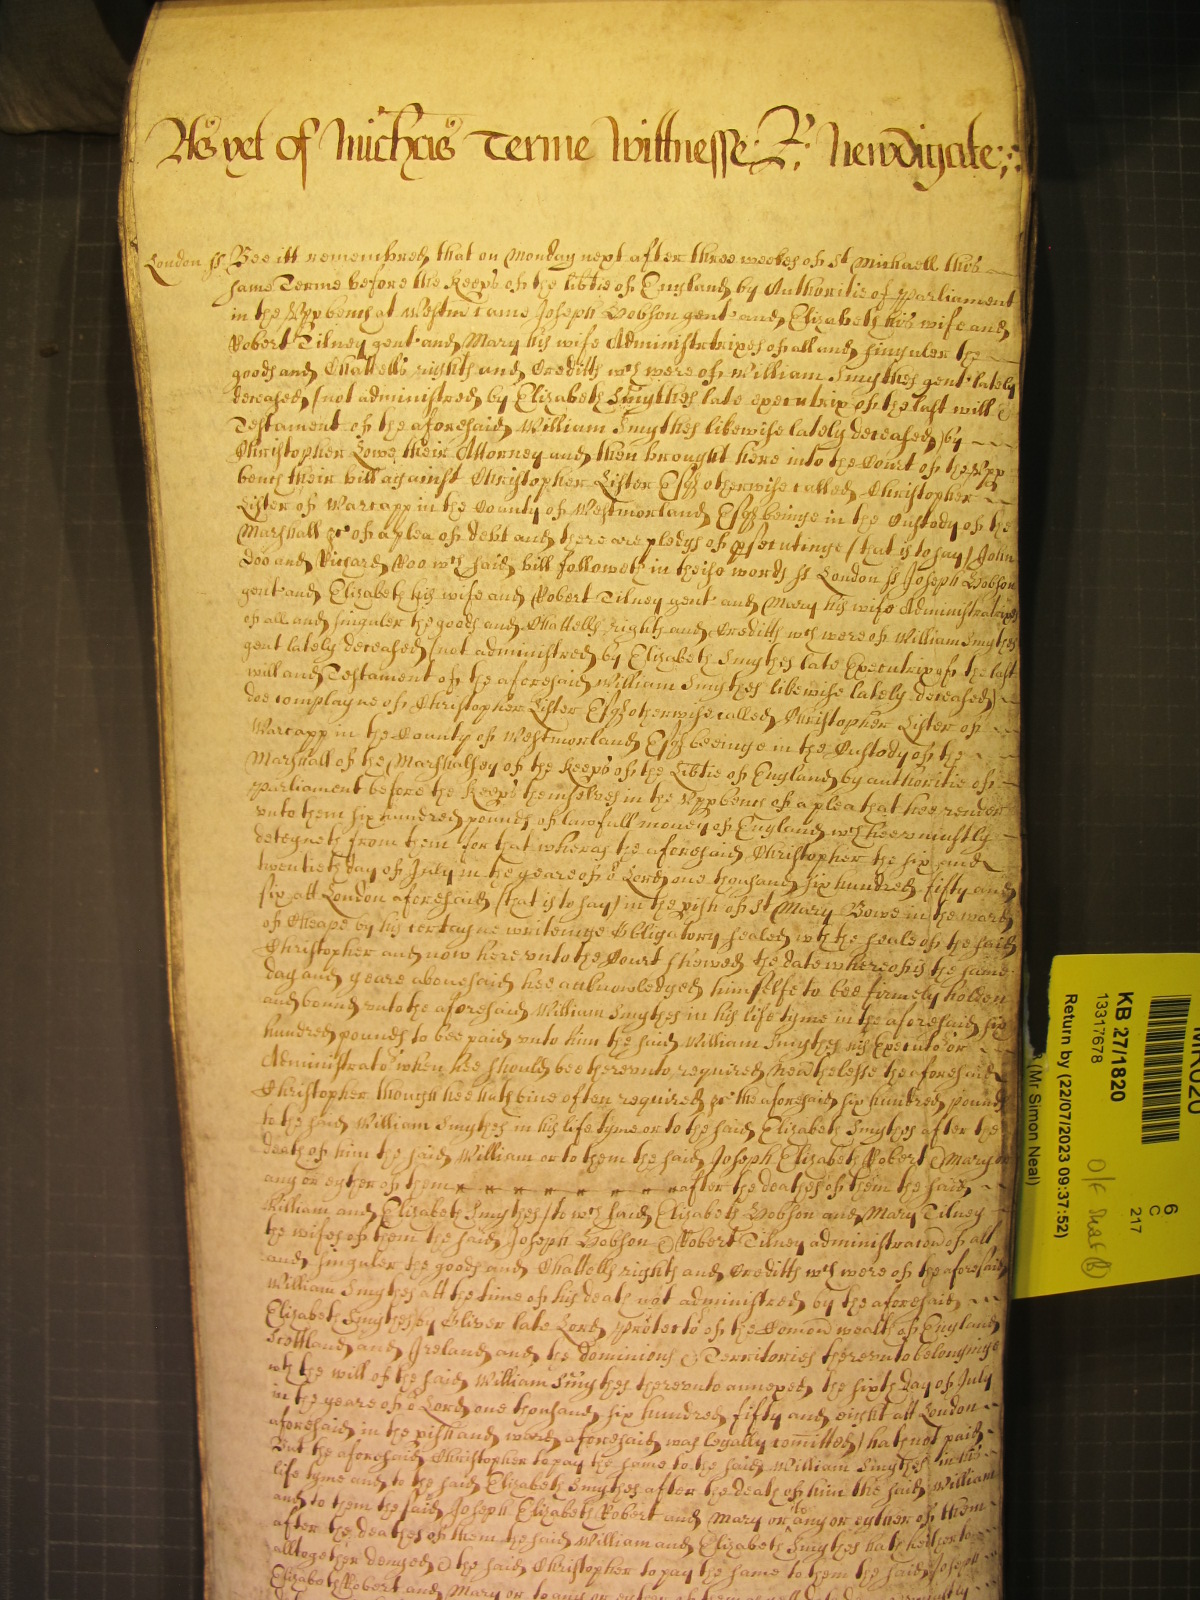 As yet of Michās Terme Wittnesse: R: Newdigate:
London ss Bee itt remembred that on Monday next after three weekes of St Michaell this
same Terme before the Keeps of the libtie of England by Authoritie of Parliament
in the Upp bench at Westm̄ came Joseph Hobson gent and Elizabeth his wife and
Robert Tilney gent and Mary his wife Administratrixes of all and singuler the
goods and Chattells rights and Creditts wch were of William Smythes gent lately
deceased (not administred by Elizabeth Smythes late executrix of the last will &
Testament of the aforesaid William Smythes likewise lately deceased) by
Christopher Lowe their Attorney and then brought here into the Court of the Upp
bench their bill against Christopher Lister Esqr otherwise called Christopher
Lister of Warcapp in the County of Westmorland Esqr beinge in the Custody of the
Marshall &c of a plea of debt and there are pledgs of psecutinge (that is to say) John
Doo and Richard Roo wch said bill followeth in theise words ss London ss Joseph Hobson
gent and Elizabeth his wife and Robert Tilney gent and Mary his wife Administratrixes
of all and singuler the goods and Chattells rights and Creditts wch were of William Smythes
gent lately deceased (not administred by Elizabeth Smythes late Executrix of the last
will and Testament of the aforesaid William Smythes likewise lately deceased)
doe complayne of Christopher Lister Esqr otherwise called Christopher Lister of
Warcapp in the County of Westmorland Esqr beeinge in the Custody of the
Marshall of the Marshalsey of the Keeps of the Libtie of England by authoritie of
Parliament before the Keeps themselves in the Upp bench of a plea that hee render
unto them six hundred pounds of lawfull money of England wch hee uniustly
deteyneth from them for that whereas the aforesaid Christopher the six and
twentieth day of July in the yeare of or Lord one thousand six hundred fifty and
six att London aforesaid (that is to say) in the pish of St Mary Bowe in the ward
of Cheape by his certayne writeinge Obligatory sealed wth the seale of the said
Christopher and now here unto the Court shewed the date whereof is the same
day and yeare abovesaid hee acknowledged himselfe to bee firmely holden
and bound unto the aforesaid William Smythes in his life tyme in the aforesaid six
hundred pounds to bee paid unto him the said William Smythes his Executor or
Administrator when hee should bee thereunto required Neverthelesse the aforesaid
Christopher though hee hath bine often required &c the aforesaid six hundred pounds
to the said William Smythes in his life tyme or to the said Elizabeth Smythes after the
death of him the said William or to them the said Joseph Elizabeth Robert & Mary or
any or eyther of them after the deathes of them the said
William and Elizabeth Smythes (to wch said Elizabeth Hobson and Mary Tilney
the wifes of them the said Joseph Hobson & Robert Tilney administracon of all
and singuler the goods and Chattells rights and Creditts wch were of the aforesaid
William Smythes att the time of his death not administred by the aforesaid
Elizabeth Smythes by Oliver late Lord Protector of the Comon wealth of England
Scottland and Ireland and the dominions & Territories thereunto belonginge
wth the will of the said William Smythes thereunto annexed the sixth day of July
in the yeare of or Lord one thousand six hundred fifty and eight att London
aforesaid in the pish and ward aforesaid was legally comitted) hath not paid
But the aforesaid Christopher to pay the same to the said William Smythes in his
life tyme and to the said Elizabeth Smythes after the death of him the said William
and to them the said Joseph Elizabeth Robert and Mary or to any or eyther of them
after the deathes of them the said William and Elizabeth Smythes hath hitherto
alltogether denyed & the said Christopher to pay the same to them the said Joseph
Elizabeth Robert and Mary or to any or eyther of them
KB 27/1820
13317678
Return by (22/07/2023 09:37:52)
(Mr Simon Neal)
6
C
217